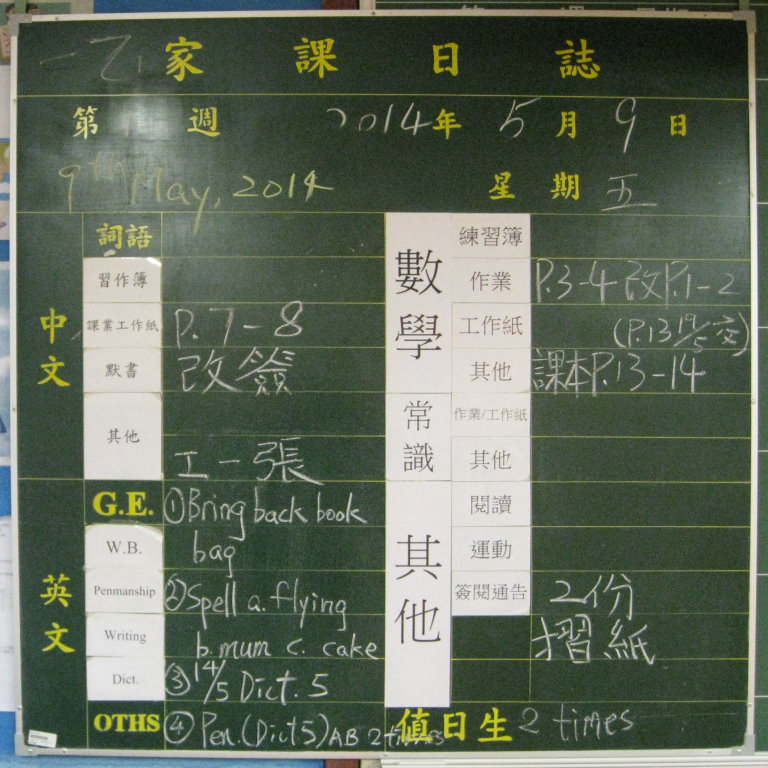 一乙 家課日誌
第 週 2014年 5月 9日
9th May, 2014 星期 五
中文
詞語
習作簿
課業工作紙 P.7-8
默書 改簽
其他
工一張
英文
G.E. ①Bring back book
W.B. bag
Penmanship ②Spell a. flying
Writing b. mum c. cake
Dict. ③14/5 Dict. 5
OTHS ④Pen.(Dict5)AB 2 times
數學
練習簿
作業 P.3-4 改P.1-2
工作紙 (P.13 19/5交)
其他 課本P.13-14
常識
作業/工作紙
其他
其他
閱讀
運動
簽閱通告 2份
摺紙
值日生 2 times